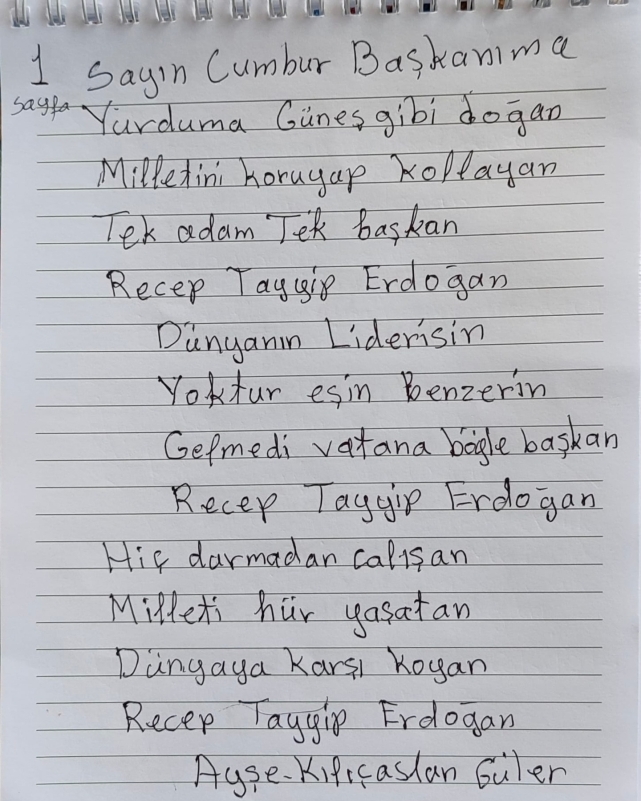 1 Sayın Cumbur Başkanıma
sayfa Yurduma Güneş gibi doğan
Milletini koruyap kollayan
Tek adam Tek başkan
Recep Tayyip Erdoğan
Dünyanın Liderisin
Yoktur eşin Benzerin
Gelmedi vatana böyle başkan
Recep Tayyip Erdoğan
Hiç darmadan çalışan
Milleti hür yaşatan
Dünyaya Karşı Koyan
Recep Tayyip Erdoğan
Ayşe-Kılıçaslan Güler